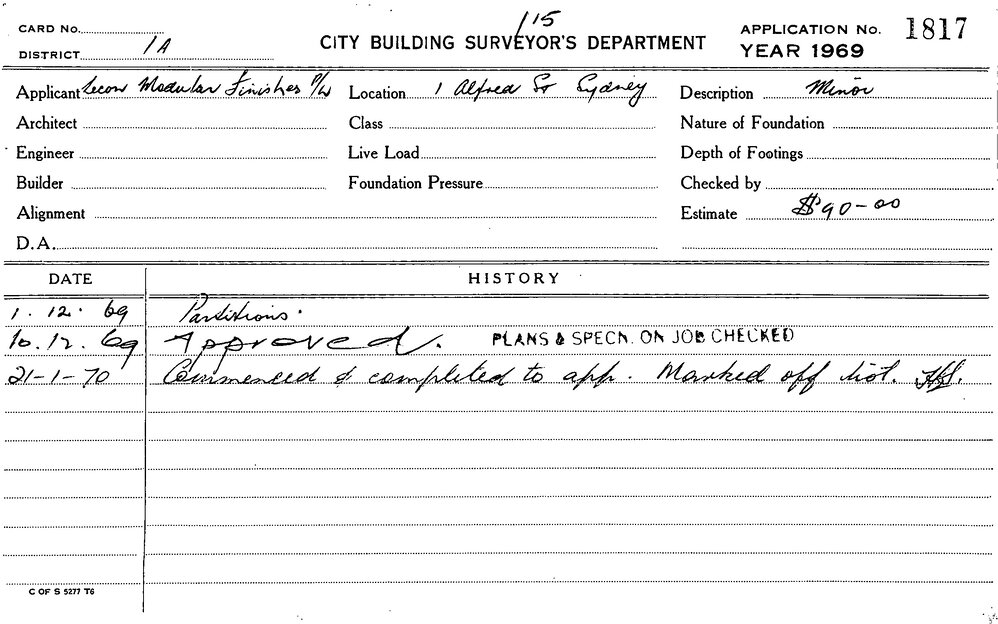 115
CARD No.
DISTRICT 1A
CITY BUILDING SURVEYOR'S DEPARTMENT
APPLICATION No. 1817
YEAR 1969
Applicant Secon Modular Finishes P/L Location 1 Alfred St Sydney Description Minor
Architect Class Nature of Foundation
Engineer Live Load Depth of Footings
Builder Foundation Pressure Checked by
Alignment Estimate $90-00
D.A.
DATE HISTORY
1. 12. 69 Partitions.
10. 12. 69 Approved. PLANS & SPECN. ON JOB CHECKED
21-1-70 Commenced & completed to app. Marked off list.
C OF S 5277 T6